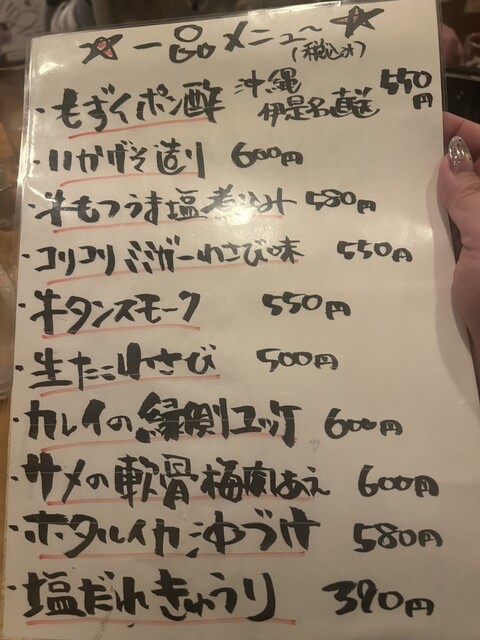 ☆一品メニュー☆
(税込み)
・もずくポン酢 沖縄 伊是名直送 550円
・いかげそ造り 600円
・牛もつうま塩煮込み 580円
・コリコリミミガーわさび味 550円
・牛タンスモーク 550円
・生たこわさび 500円
・カレイの縁側ユッケ 600円
・サメの軟骨梅肉あえ 600円
・ホタルイカ沖づけ 580円
・塩だれきゅうり 390円